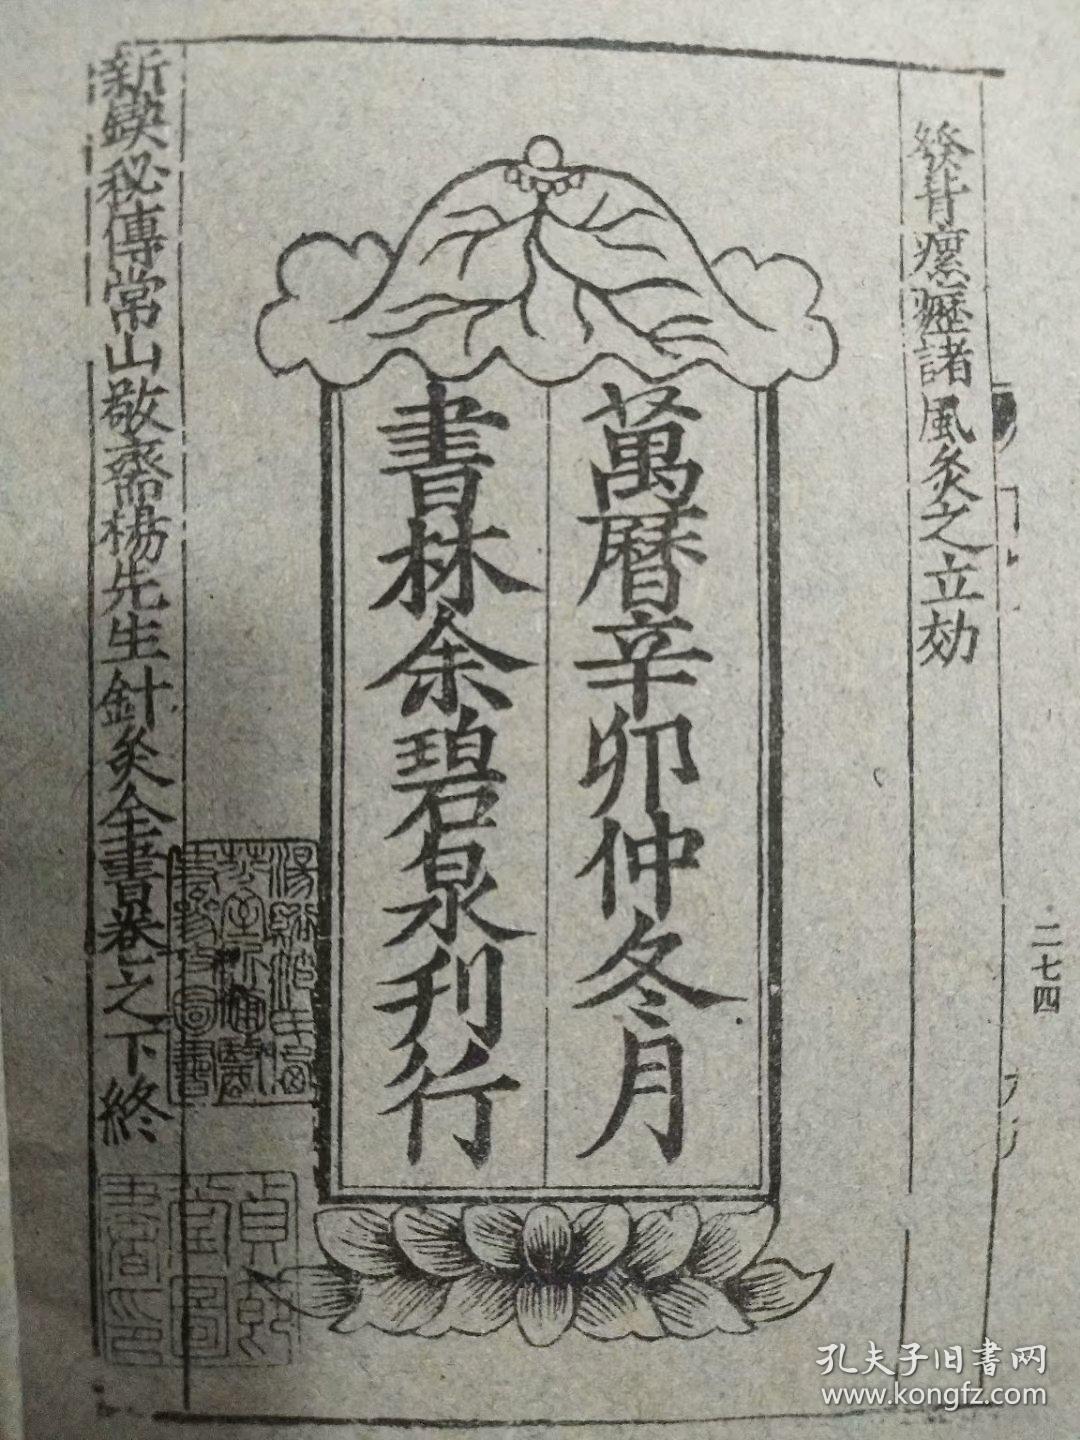 發背瘰癧諸風灸之立効
萬曆辛卯仲冬月
書林余碧泉刊行
新鍥秘傳常山敬齋楊先生針灸全書卷之下終
二七四
孔夫子旧書网
www.kongfz.com